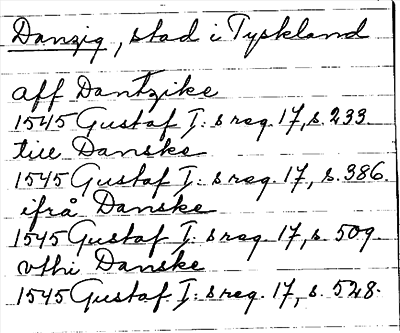 Danzig, stad i Tyskland
aff Dantzike
1545 Gustaf I: s reg. 17, s. 233.
till Danske
1545 Gustaf I: s reg. 17, s. 386.
ifrå Danske
1545 Gustaf I: s reg. 17, s. 509.
vthi Danske
1545 Gustaf I: s reg. 17, s. 528.